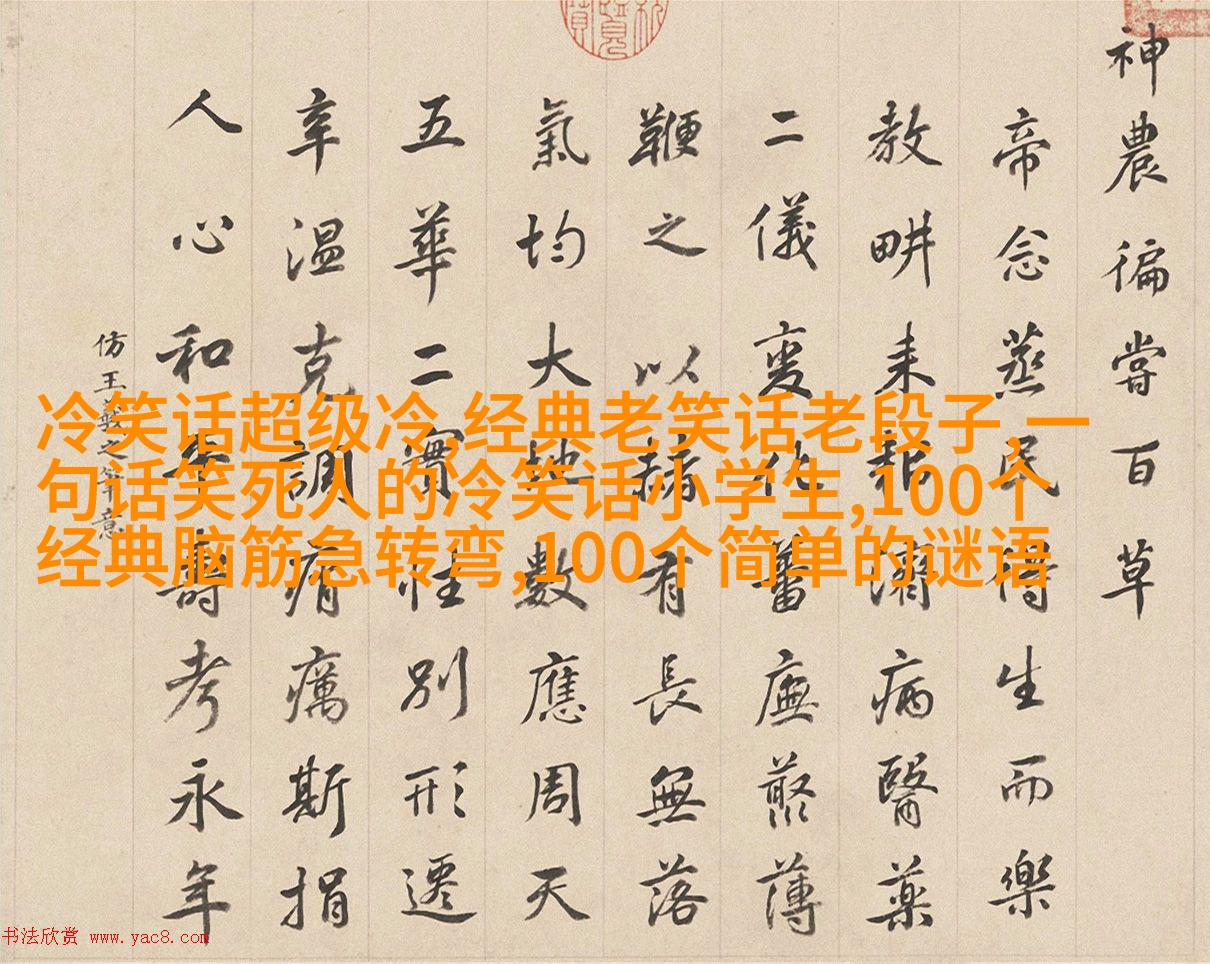 神農徧嘗百草
帝念蒸民得生而樂
教畊耒耜病醫藥
二儀變化蕃廡藂薄
鞭之以赭有長無落
氣均大地數應周天
五華二實性別形遷
辛温克調痟癘斯捐
人心和平壽考永年
仿王羲之筆意
冷笑话超级冷,经典老笑话老段子,一
句话笑死人的冷笑话小学生,100个
经典脑筋急转弯,100个简单的谜语
书法欣赏 www.yac8.com